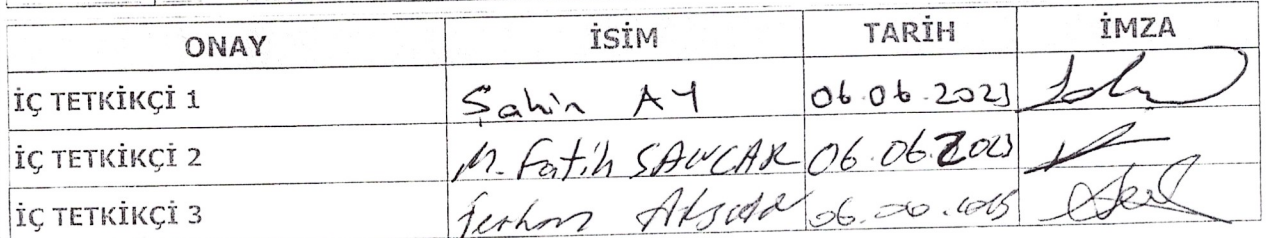 ONAY İSİM TARİH İMZA
İÇ TETKİKÇİ 1 Şahin AY 06.06.2023
İÇ TETKİKÇİ 2 M. Fatih SANCAR 06.06.2023
İÇ TETKİKÇİ 3